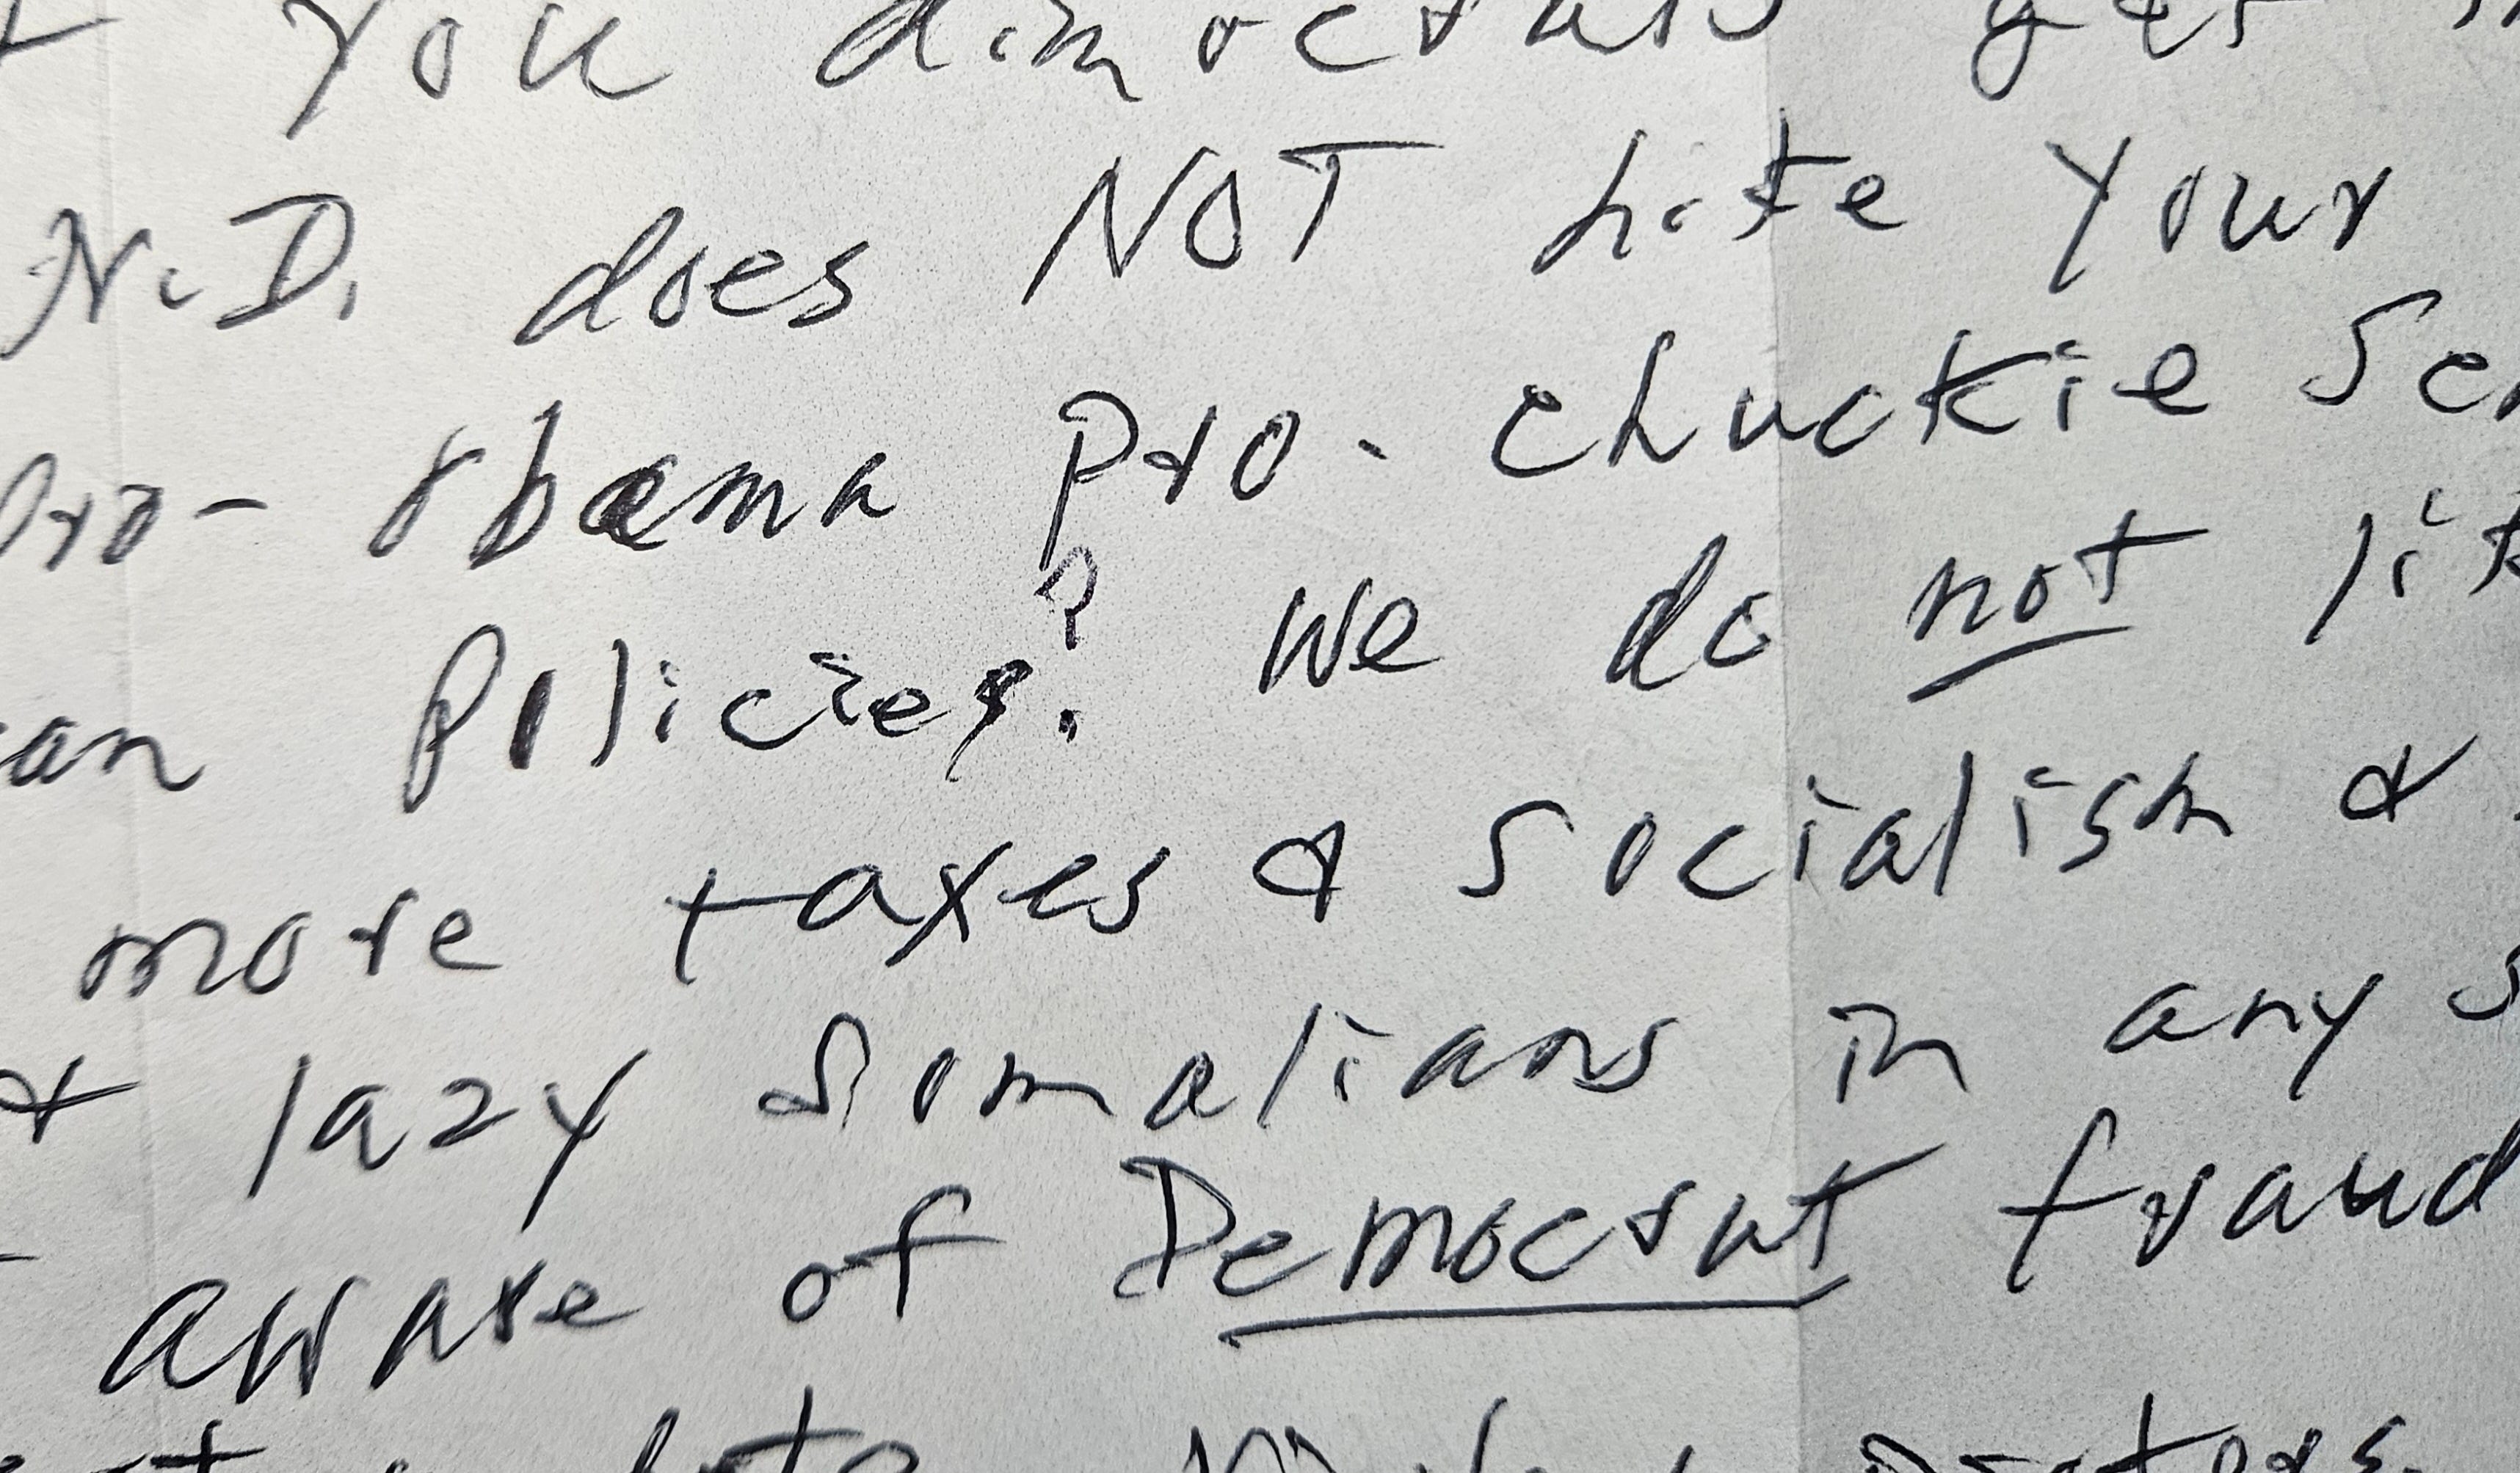 you dimocrats get
N.D. does NOT like your
pro- obama pro- chuckie
policies? We do not
more taxes & socialism &
& lazy Somalians in any
aware of Democrat fraud